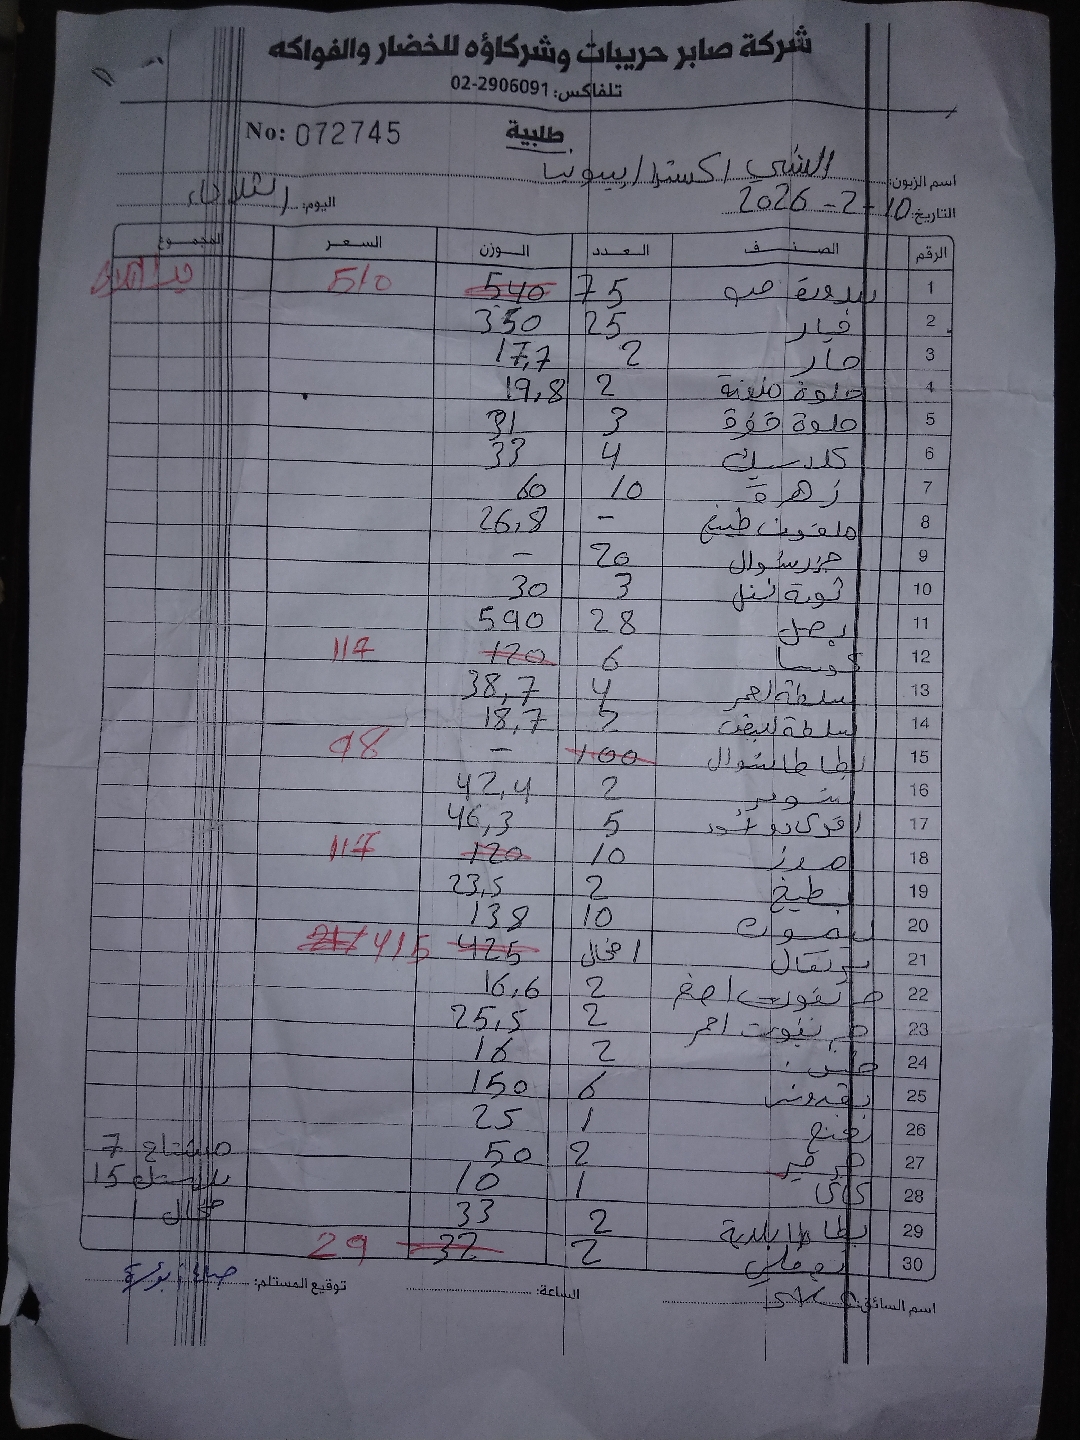 شركة صابر حريبات وشركاؤه للخضار والفواكه
تلفاكس: 02-2906091
طلبية No: 072745
اسم الزبون: الشني اكسترا بيونيا
التاريخ: 10-2-2026 اليوم: الثلاثاء
الرقم الصنف العدد الوزن السعر المجموع
1 بندورة حب 75 540 510
2 خيار 25 350
3 حار 2 17,7
4 حلوة 2 19,8
5 حلوة 3 31
6 كلاسيك 4 33
7 زهرة 10 60
8 ملفوف طبيخ - 26,8
9 جزر شوال 20 -
10 ثومة 3 30
11 بصل 28 590
12 كوسا 6 120 117
13 سلطة احمر 4 38,7
14 سلطة ابيض 2 18,7
15 بطاطا شوال 100 - 98
16 2 42,4
17 افوكادو 5 46,3
18 موز 10 120 117
19 بطيخ 2 23,5
20 ليمون 10 138
21 برتقال 1 425 415
22 2 16,6
23 احمر 2 25,5
24 2 16
25 بقدونس 6 150
26 نعنع 1 25
27 جرجير 2 50 مشتاح 7
28 1 10 15
29 بطاطا بلدية 2 33
30 2 32 29
اسم السائق: الساعة: توقيع المستلم: